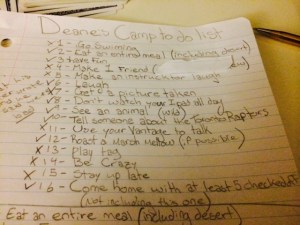 Deane's Camp to do list
✓ 1 - Go Swimming
✗ 2 - Eat an entire meal (including desert)
✓ 3 - Have fun
✗ 4 - Make 1 Friend (
✗ 5 - Make an instructor laugh
✓ 6 - Laugh
picture taken
✓ 8 - Don't watch your Ipad all day
See an animal (wild)
✓ 10 - Tell someone about the Toronto Raptors
✗ 11 - Use your Vantage to talk
✓ 12 - Roast a Marsh Mellow (if possible)
✗ 13 - Play tag
✗ 14 - Be Crazy
✗ 15 - Stay up late
✓ 16 - Come home with at least 5 checked off
(Not including this one)
Eat an entire meal (including desert)